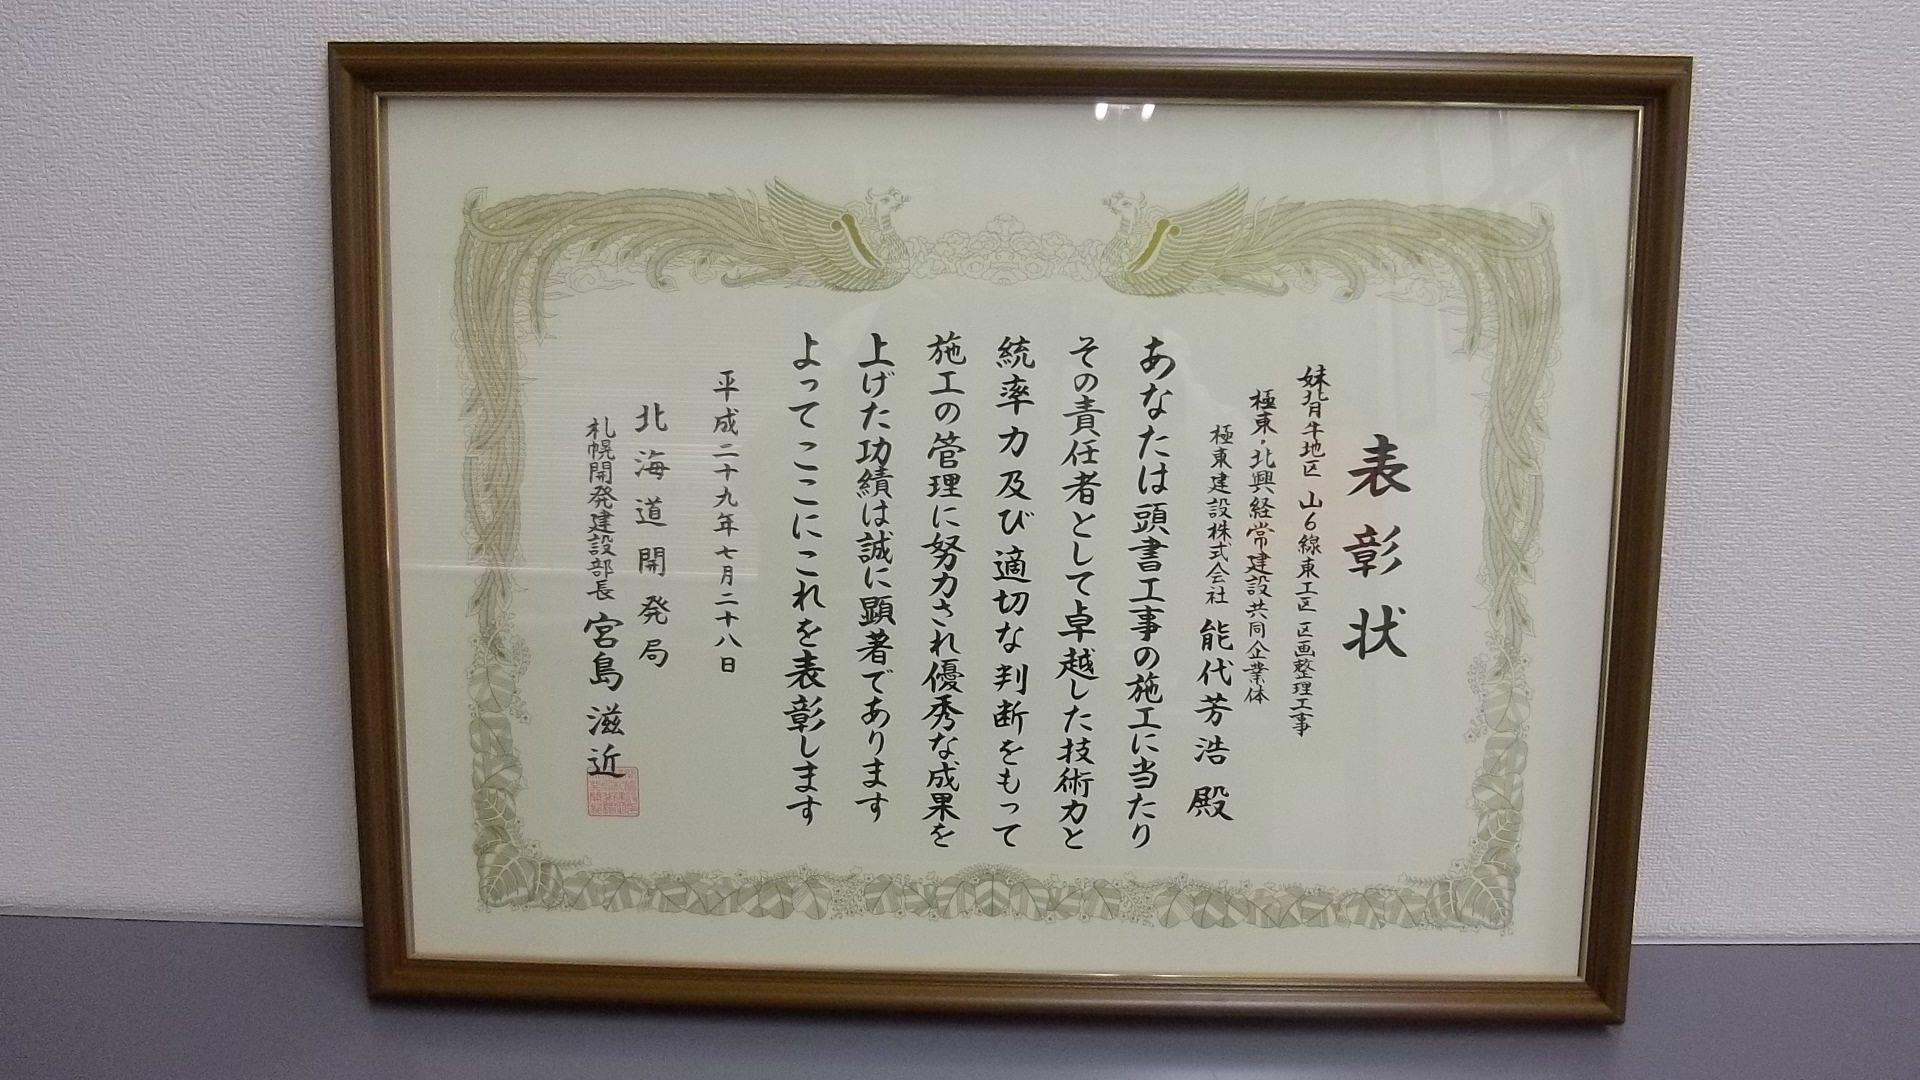 表彰状
妹背牛地区 山6線東工区 区画整理工事
極東・北興経常建設共同企業体
極東建設株式会社 能代芳浩 殿
あなたは頭書工事の施工に当たり
その責任者として卓越した技術力と
統率力及び適切な判断をもって
施工の管理に努力され優秀な成果を
上げた功績は誠に顕著であります
よってここにこれを表彰します
平成二十九年七月二十八日
北海道開発局
札幌開発建設部長 宮島滋近